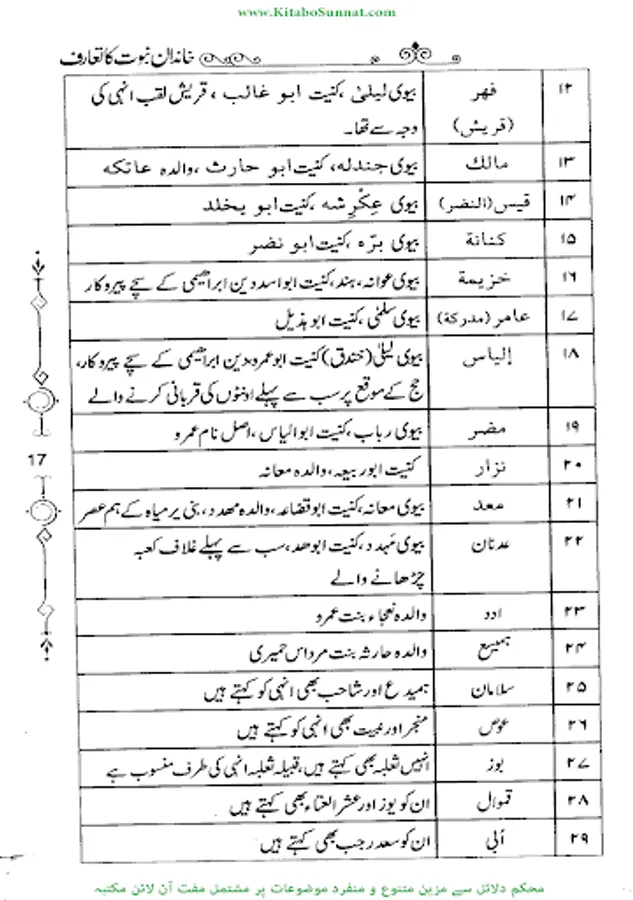 www.KitaboSunnat.com
خاندان نبوت کا تعارف
۱۲ فهر بیوی لیلیٰ، کنیت ابو غالب، قریش لقب انہی کی
(قریش) وجہ سے تھا۔
۱۳ مالك بیوی جندله، کنیت ابو حارث، والدہ عاتکه
۱۴ قیس (النضر) بیوی عِکْرِشه، کنیت ابو یخلد
۱۵ کنانة بیوی برّہ، کنیت ابو نضر
۱۶ خزیمة بیوی عوانہ، ہند، کنیت ابو اسد دین ابراہیمی کے سچے پیروکار
۱۷ عامر (مدرکة) بیوی سلمٰی، کنیت ابو ہذیل
۱۸ إلیاس بیوی لیلیٰ (خندق) کنیت ابو عمرو، دین ابراہیمی کے سچے پیروکار،
حج کے موقع پر سب سے پہلے اونٹوں کی قربانی کرنے والے
۱۹ مضر بیوی رباب، کنیت ابو الیاس، اصل نام عمرو
۲۰ نزار کنیت ابو ربیعہ، والدہ معانہ
17
۲۱ معد بیوی معانہ، کنیت ابو قضاعہ، والدہ مھدد، بنی یرمیاہ کے ہم عصر
۲۲ عدنان بیوی مَہدد، کنیت ابو معد، سب سے پہلے غلاف کعبہ
چڑھانے والے
۲۳ ادد والدہ نعجاء بنت عمرو
۲۴ ہمیسع والدہ حارثہ بنت مرداس حمیری
۲۵ سلامان ہمیدع اور شاحب بھی انہی کو کہتے ہیں
۲۶ عوص منجر اور بھی انہی کو کہتے ہیں
۲۷ بوز انہیں ثعلبہ بھی کہتے ہیں، قبیلہ ثعلبہ انہی کی طرف منسوب ہے
۲۸ قموال ان کو یوز اور عشر العتاء بھی کہتے ہیں
۲۹ اُبَی ان کو سعد رجب بھی کہتے ہیں
محکم دلائل سے مزین متنوع و منفرد موضوعات پر مشتمل مفت آن لائن مکتبہ